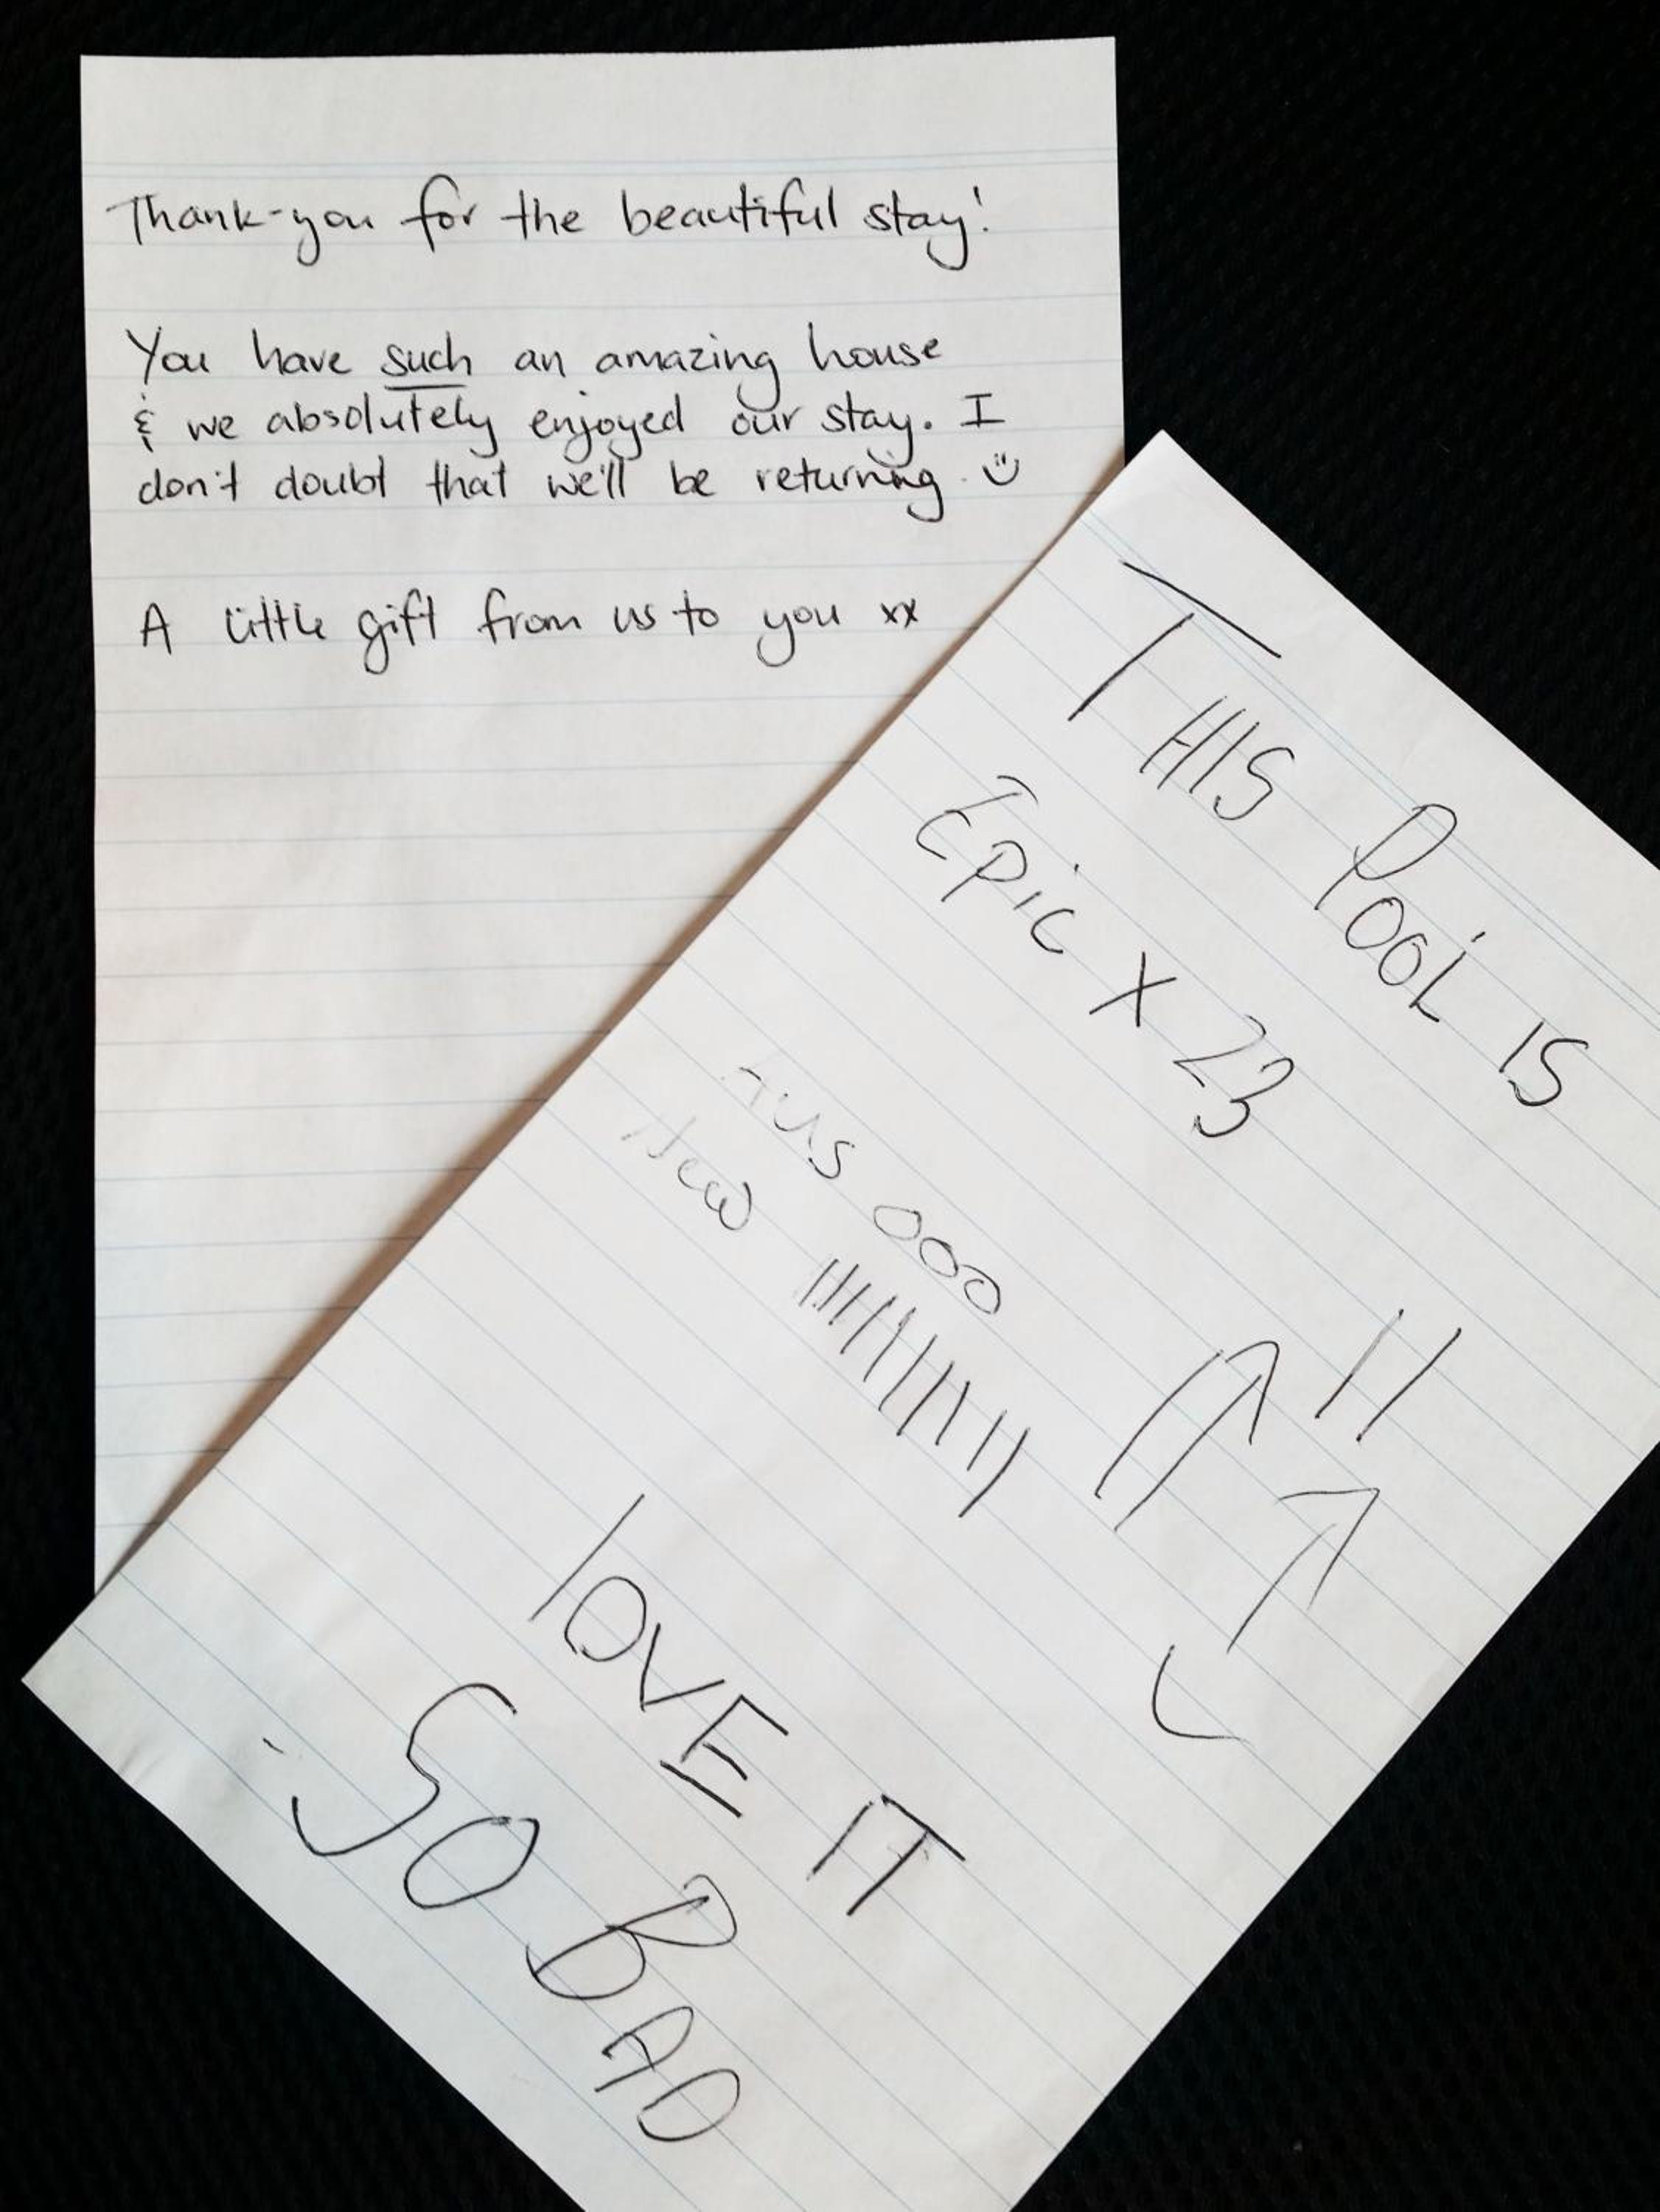 Thank-you for the beautiful stay!
You have such an amazing house
& we absolutely enjoyed our stay. I
don't doubt that we'll be returning. ☺
A little gift from us to you xx
THIS Pool IS
Epic X 23
ooo
New
lOVE IT
SO BAD